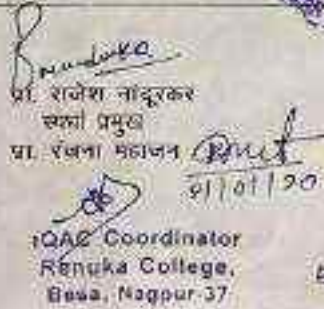 प्रा. राजेश नांदूरकर
स्पर्धा प्रमुख
प्रा. रंजना महाजन
IQAC Coordinator
Renuka College,
Besa, Nagpur-37